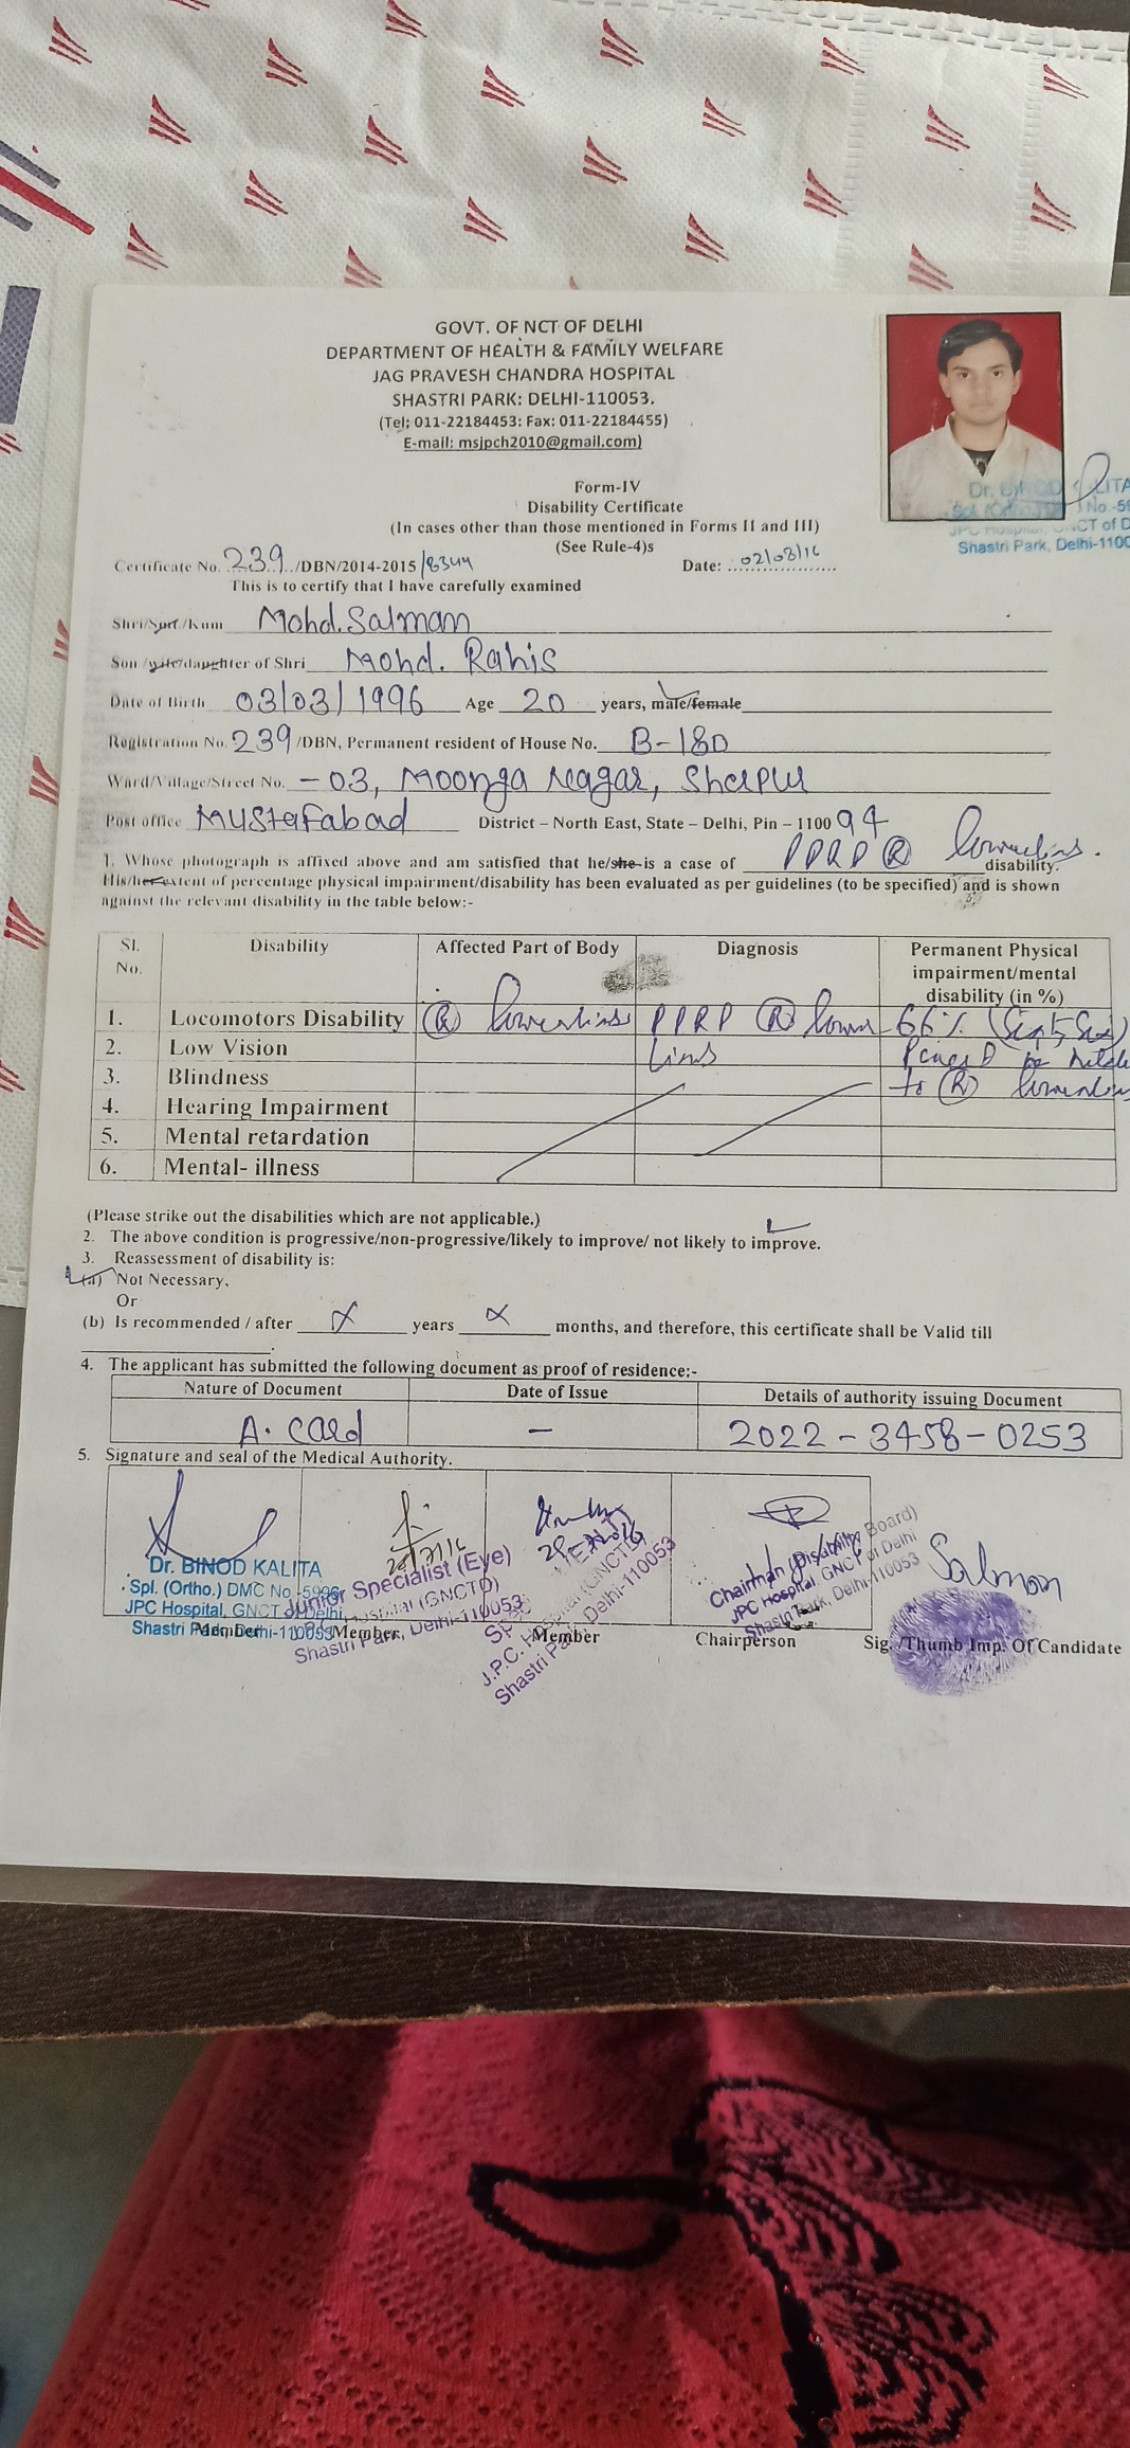 GOVT. OF NCT OF DELHI
DEPARTMENT OF HEALTH & FAMILY WELFARE
JAG PRAVESH CHANDRA HOSPITAL
SHASTRI PARK: DELHI-110053.
(Tel; 011-22184453: Fax: 011-22184455)
E-mail: msjpch2010@gmail.com)
Form-IV
Disability Certificate
(In cases other than those mentioned in Forms II and III)
(See Rule-4)s
Shastri Park, Delhi-1100
Certificate No. 239 /DBN/2014-2015/8344 Date: 02/03/16
This is to certify that I have carefully examined
Shri/Smt/Kum Mohd. Salman
Son/wife/daughter of Shri Mohd. Rahis
Date of Birth 03/03/1996 Age 20 years, male/female
Registration No. 239/DBN, Permanent resident of House No. B-180
Ward/Village/Street No. -03, Moonga Nagar, Sherpur
Post office Mustafabad District – North East, State – Delhi, Pin – 110094
1. Whose photograph is affixed above and am satisfied that he/she is a case of PPRP Ⓡ disability.
His/her extent of percentage physical impairment/disability has been evaluated as per guidelines (to be specified) and is shown
against the relevant disability in the table below:-
Sl. No. Disability Affected Part of Body Diagnosis Permanent Physical impairment/mental disability (in %)
1. Locomotors Disability Ⓡ PPRP Ⓡ 66%
2. Low Vision
3. Blindness
4. Hearing Impairment
5. Mental retardation
6. Mental- illness
(Please strike out the disabilities which are not applicable.)
2. The above condition is progressive/non-progressive/likely to improve/ not likely to improve.
3. Reassessment of disability is:
(a) Not Necessary.
Or
(b) Is recommended / after X years X months, and therefore, this certificate shall be Valid till
4. The applicant has submitted the following document as proof of residence:-
Nature of Document Date of Issue Details of authority issuing Document
A. Card – 2022-3458-0253
5. Signature and seal of the Medical Authority.
Dr. BINOD KALITA
Spl. (Ortho.) DMC No.-5996
JPC Hospital, GNCT of Delhi
Shastri Park, Delhi-110053
Junior Specialist (Eye)
Shastri Park, Delhi-110053
J.P.C. Hospital (GNCTD)
Shastri Park, Delhi-110053
Chairman (Disability Board)
JPC Hospital, GNCT of Delhi
Shastri Park, Delhi-110053
Salman
Member Member Member Chairperson Sig. /Thumb Imp. Of Candidate